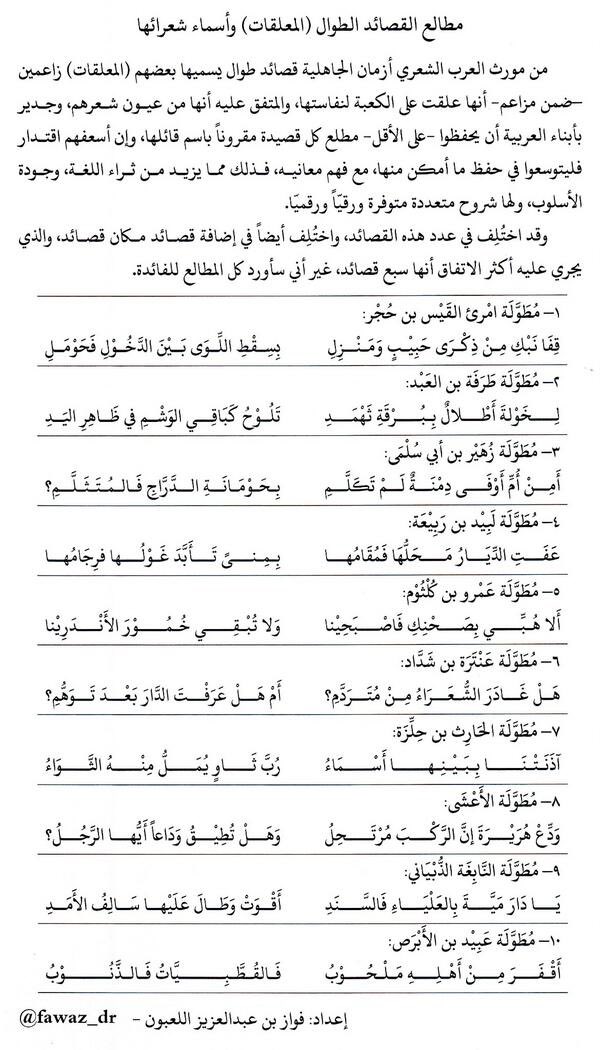 مطالع القصائد الطوال (المعلقات) وأسماء شعرائها
من مورث العرب الشعري أزمان الجاهلية قصائد طوال يسميها بعضهم (المعلقات) زاعمين
–ضمن مزاعم– أنها علقت على الكعبة لنفاستها، والمتفق عليه أنها من عيون شعرهم، وجدير
بأبناء العربية أن يحفظوا –على الأقل– مطلع كل قصيدة مقروناً باسم قائلها، وإن أسعفهم اقتدار
فليتوسعوا في حفظ ما أمكن منها، مع فهم معانيه، فذلك مما يزيد من ثراء اللغة، وجودة
الأسلوب، ولها شروح متعددة متوفرة ورقيّاً ورقميّا.
وقد اختُلِف في عدد هذه القصائد، واختُلِف أيضاً في إضافة قصائد مكان قصائد، والذي
يجري عليه أكثر الاتفاق أنها سبع قصائد، غير أني سأورد كل المطالع للفائدة.
١– مُطَوَّلَة امْرِئ القَيْس بن حُجْر:
قِفَا نَبْكِ مِنْ ذِكْرَى حَبِيْبٍ وَمَنْزِلِ بِسِقْطِ اللِّوَى بَيْنَ الدَّخُوْلِ فَحَوْمَلِ
٢– مُطَوَّلَة طَرَفَة بن العَبْد:
لِخَوْلَةَ أَطْلالٌ بِبُرْقَةِ ثَهْمَدِ تَلُوْحُ كَبَاقِي الوَشْمِ فِي ظَاهِرِ اليَدِ
٣– مُطَوَّلَة زُهَيْر بن أبي سُلْمَى:
أَمِنْ أُمِّ أَوْفَى دِمْنَةٌ لَمْ تَكَلَّمِ بِحَوْمَانَةِ الدَّرَّاجِ فَالمُتَثَلَّمِ؟
٤– مُطَوَّلَة لَبِيْد بن رَبِيْعَة:
عَفَتِ الدِّيَارُ مَحَلُّهَا فَمُقَامُهَا بِمِنىً تَأَبَّدَ غَوْلُهَا فَرِجَامُهَا
٥– مُطَوَّلَة عَمْرو بن كُلْثُوْم:
أَلا هُبِّي بِصَحْنِكِ فَاصْبَحِيْنا وَلا تُبْقِي خُمُوْرَ الأَنْدَرِيْنا
٦– مُطَوَّلَة عَنْتَرَة بن شَدَّاد:
هَلْ غَادَرَ الشُّعَرَاءُ مِنْ مُتَرَدَّمِ؟ أَمْ هَلْ عَرَفْتَ الدَّارَ بَعْدَ تَوَهُّمِ؟
٧– مُطَوَّلَة الحَارِث بن حِلِّزَة:
آذَنَتْنَا بِبَيْنِهَا أَسْمَاءُ رُبَّ ثَاوٍ يُمَلُّ مِنْهُ الثَّوَاءُ
٨– مُطَوَّلَة الأَعْشَى:
وَدِّعْ هُرَيْرَةَ إِنَّ الرَّكْبَ مُرْتَحِلُ وَهَلْ تُطِيْقُ وَدَاعاً أَيُّها الرَّجُلُ؟
٩– مُطَوَّلَة النَّابِغَة الذُّبْيَاني:
يَا دَارَ مَيَّةَ بِالعَلْيَاءِ فَالسَّنَدِ أَقْوَتْ وَطَالَ عَلَيْها سَالِفُ الأَمَدِ
١٠– مُطَوَّلَة عَبِيْد بن الأَبْرَص:
أَقْفَرَ مِنْ أَهْلِهِ مَلْحُوْبُ فَالقُطَّبِيَّاتُ فَالذَّنُوْبُ
إعداد: فواز بن عبدالعزيز اللعبون – @fawaz_dr